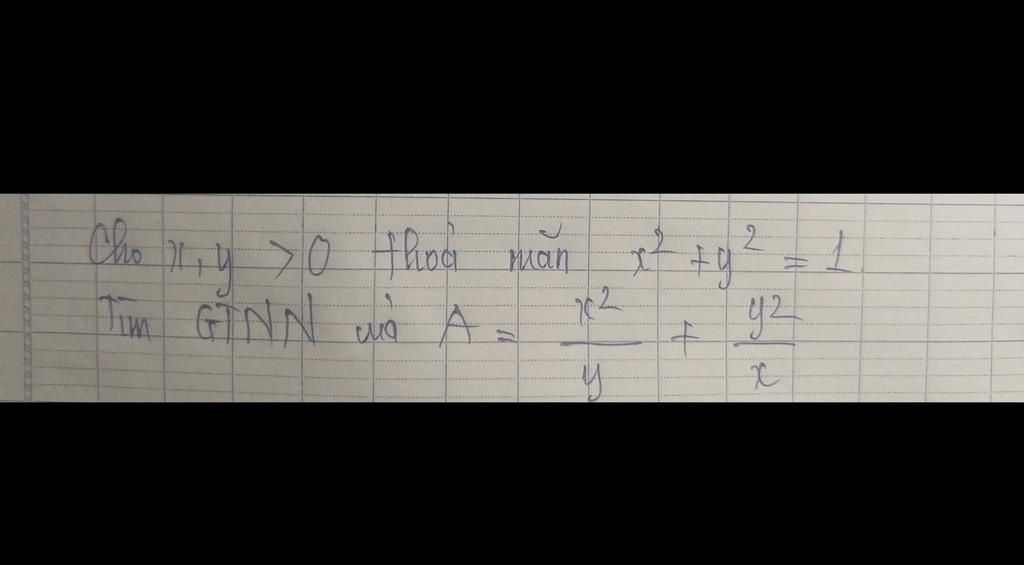 Cho x, y > 0 thoả mãn x² + y² = 1
Tìm GTNN của A = x²/y + y²/x